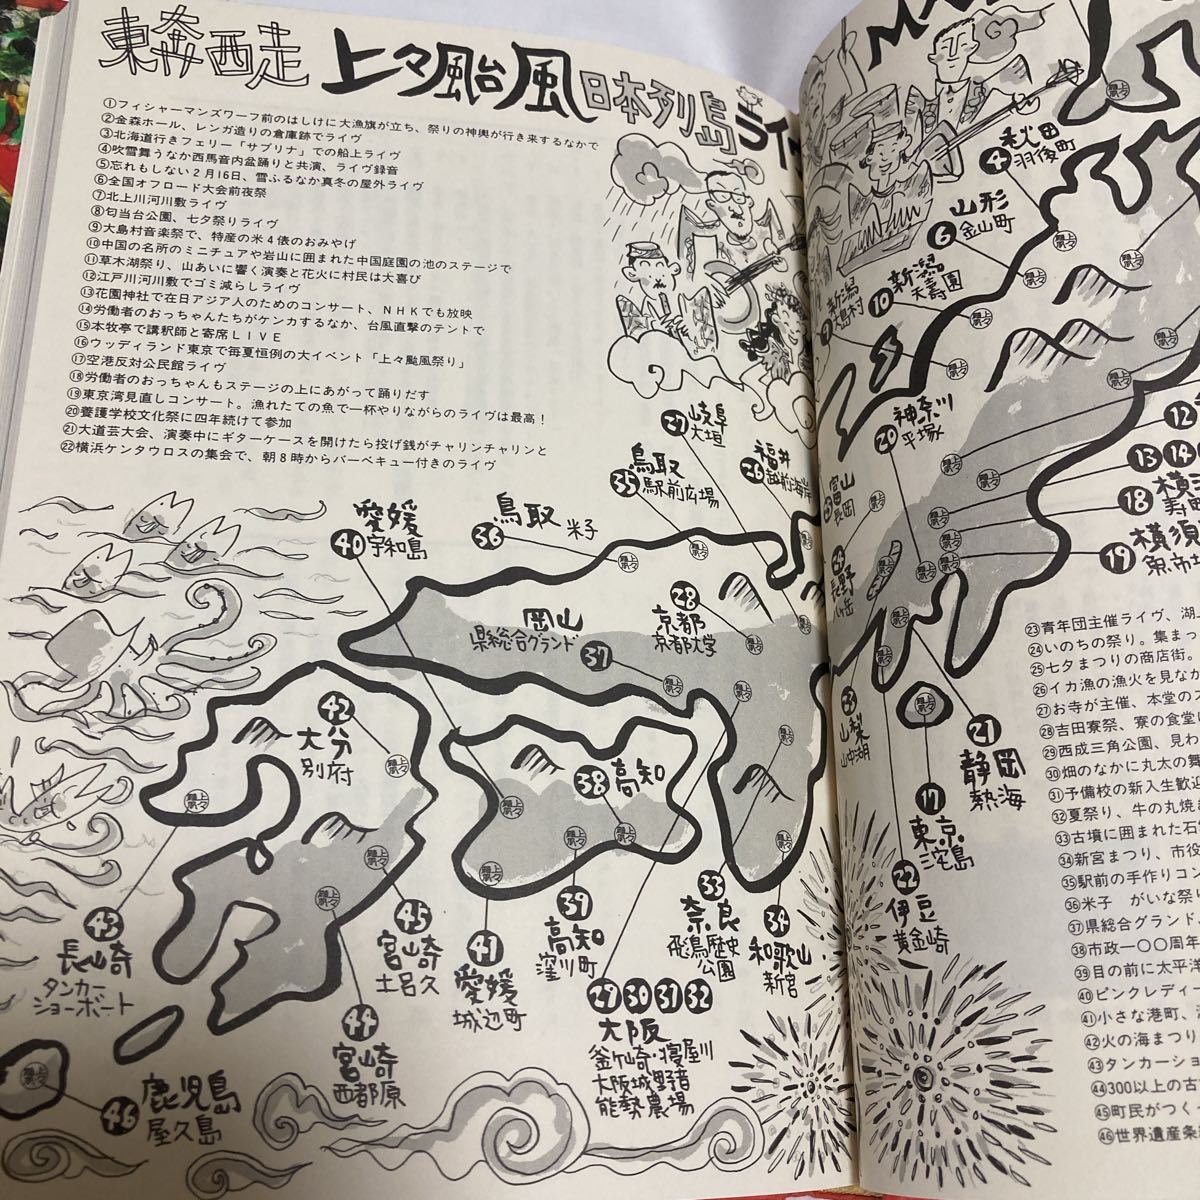 東奔西走 上々颱風 日本列島ライ
①フィシャーマンズワーフ前のはしけに大漁旗が立ち、祭りの神輿が行き来するなかで
②金森ホール、レンガ造りの倉庫跡でライヴ
③北海道行きフェリー「サブリナ」での船上ライヴ
④吹雪舞うなか西馬音内盆踊りと共演、ライヴ録音
⑤忘れもしない2月16日、雪ふるなか真冬の屋外ライヴ
⑥全国オフロード大会前夜祭
⑦北上川河川敷ライヴ
⑧匂当台公園、七夕祭りライヴ
⑨大島村音楽祭で、特産の米4俵のおみやげ
⑩中国の名所のミニチュアや岩山に囲まれた中国庭園の池のステージで
⑪草木湖祭り、山あいに響く演奏と花火に村民は大喜び
⑫江戸川河川敷でゴミ減らしライヴ
⑬花園神社で在日アジア人のためのコンサート、NHKでも放映
⑭労働者のおっちゃんたちがケンカするなか、台風直撃のテントで
⑮本牧亭で講釈師と寄席LIVE
⑯ウッディランド東京で毎夏恒例の大イベント「上々颱風祭り」
⑰空港反対公民館ライヴ
⑱労働者のおっちゃんもステージの上にあがって踊りだす
⑲東京湾見直しコンサート。漁れたての魚で一杯やりながらのライヴは最高！
⑳養護学校文化祭に四年続けて参加
㉑大道芸大会、演奏中にギターケースを開けたら投げ銭がチャリンチャリンと
㉒横浜ケンタウロスの集会で、朝8時からバーベキュー付きのライヴ
④秋田
羽後町
⑥山形
金山町
⑩新潟
天壽園
新潟
大島村
㉗岐阜
大垣
㉖福井
越前海岸
⑳神奈川
平塚
⑫
⑬⑭
⑱横
寿町
⑲横須
魚市場
富山
長岡
長野
八ヶ岳
㉟鳥取
駅前広場
㊱鳥取
米子
㊵愛媛
宇和島
岡山
県総合グランド㊲
㉘
京都
京都大学
㊷
大分
別府
㊳高知
山梨
山中湖
㉑
静岡
熱海
⑰
東京
㉒
伊豆
黄金崎
㉝
奈良
飛鳥歴史
公園
㉞
和歌山
新宮
㊸
長崎
タンカー
ショーボート
㊺
宮崎
土呂久
㊶
愛媛
城辺町
㊴
高知
窪川町
㉙㉚㉛㉜
大阪
釜ヶ崎・寝屋川
大阪城野音
能勢農場
㊹
宮崎
西都原
㊻鹿児島
屋久島
㉓青年団主催ライヴ、湖
㉔いのちの祭り。集まっ
㉕七夕まつりの商店街。
㉖イカ漁の漁火を見なが
㉗お寺が主催、本堂の
㉘吉田寮祭、寮の食堂
㉙西成三角公園、見わ
㉚畑のなかに丸太の舞
㉛予備校の新入生歓迎
㉜夏祭り、牛の丸焼き
㉝古墳に囲まれた石
㉞新宮まつり、市役
㉟駅前の手作りコン
㊱米子　がいな祭り
㊲県総合グランド
㊳市政一〇〇周年
㊴目の前に太平洋
㊵ピンクレディー
㊶小さな港町、
㊷火の海まつり
㊸タンカーショ
㊹300以上の古
㊺町民がつく
㊻世界遺産条